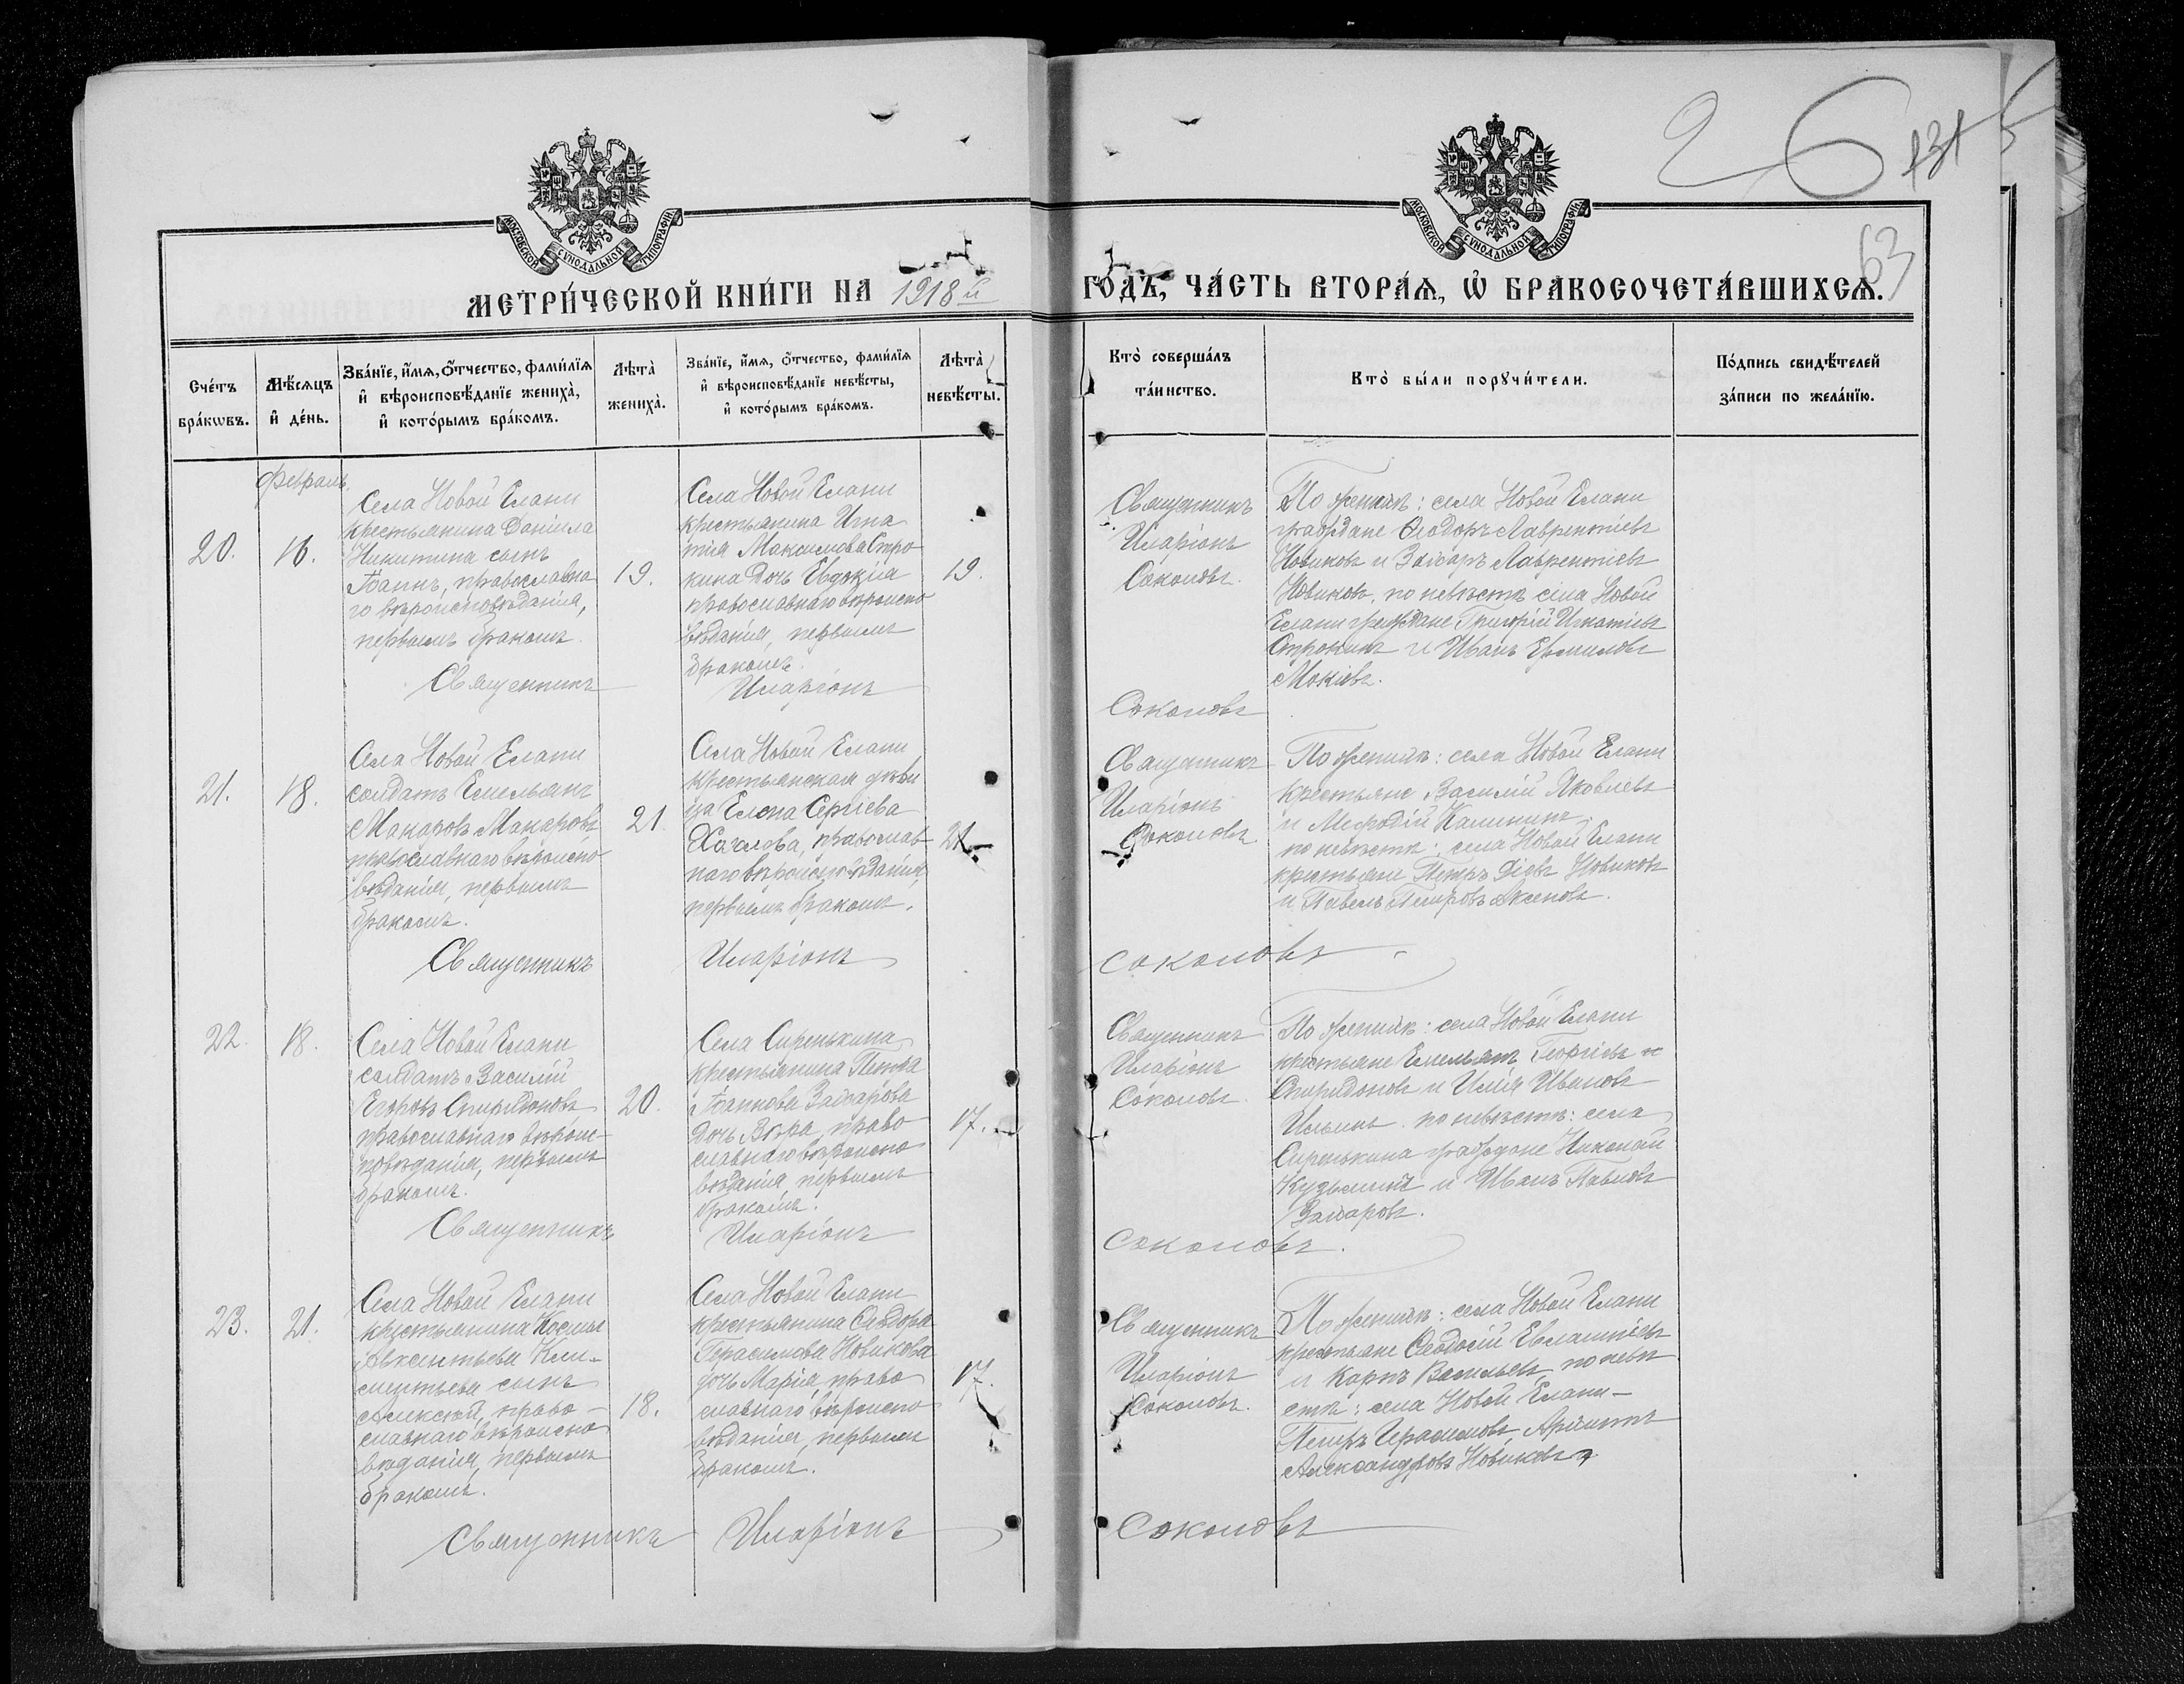 26 131
63
МОСКОВСКОЙ СѴНОДАЛЬНОЙ ТИПОГРАФІИ
МОСКОВСКОЙ СѴНОДАЛЬНОЙ ТИПОГРАФІИ
МЕТРИ́ЧЕСКОЙ КНИ́ГИ НА 1918 й ГО́ДЪ, ЧА́СТЬ ВТОРА́Ѧ, Ѽ БРАКОСОЧЕТА́ВШИХСѦ.
Сче́тъ бра́кѡвъ.
Мѣ́сѧцъ и҆ де́нь.
Зва́нїе, и҆́мѧ, ѻ҆́тчество, фами́лїѧ
и҆ вѣроисповѣ́данїе жениха̀,
и҆ кото́рымъ бра́комъ.
Лѣ́та̀ жениха̀.
Зва́нїе, и҆́мѧ, ѻ҆́тчество, фами́лїѧ
и҆ вѣроисповѣ́данїе невѣ́сты,
и҆ кото́рымъ бра́комъ.
Лѣ́та̀ невѣ́сты.
Кто̀ соверша́лъ
та́инство.
Кто̀ бы́ли порꙋчи́тели.
По́дпись свидѣ́телей
за́писи по жела́нїю.
20.
Февраль
16.
Села Новой Елани
крестьянина Даніила
Никитина сынъ
Іоаннъ, православна
го вѣроисповѣданія,
первымъ бракомъ.
19.
Села Новой Елани
крестьянина Игна
тія Максимова Стро
кина дочь Евдокія
православнаго вѣроиспо
вѣданія, первымъ
бракомъ.
19.
Священникъ
Иларіонъ
Соколовъ.
По женихѣ: села Новой Елани
граждане Ѳеодоръ Лаврентіевъ
Новиковъ и Захаръ Лаврентіевъ
Новиковъ, по невѣстѣ села Новой
Елани граждане Григорій Игнатіевъ
Строкинъ и Иванъ
Мокіевъ.
Священникъ Иларіонъ Соколовъ
21.
18.
Села Новой Елани
солдатъ Емельянъ
Макаровъ Макаровъ
православнаго вѣроиспо
вѣданія, первымъ
бракомъ.
21.
Села Новой Елани
крестьянская дѣви
ца Елена Сергіева
православ
наго вѣроисповѣданія,
первымъ бракомъ.
21.
Священникъ
Иларіонъ
Соколовъ.
По женихѣ: села Новой Елани
крестьяне Василій Яковлевъ
и Меѳодій Калининъ,
по невѣстѣ: села Новой Елани
крестьяне Петръ Новиковъ
и Павелъ Петровъ Аксеновъ.
Священникъ Иларіонъ Соколовъ
22.
18.
Села Новой Елани
солдатъ Василій
Егоровъ Спиридоновъ
православнаго вѣроис-
повѣданія, первымъ
бракомъ.
20.
Села Сиренькина
крестьянина Петра
Іоаннова Захарова
дочь Вѣра, право
славнаго вѣроиспо
вѣданія первымъ
бракомъ.
17.
Священникъ
Иларіонъ
Соколовъ.
По женихѣ: села Новой Елани
крестьяне Емельянъ Георгіевъ
Спиридоновъ и Илія Ивановъ
Ильинъ. по невѣстѣ: села
Сиренькина граждане Николай
Кузьминъ и Иванъ Павловъ
Захаровъ.
Священникъ Иларіонъ Соколовъ.
23.
21.
Села Новой Елани
крестьянина Космы
Авксентьева Кли-
ментьева сынъ
Алексій, право-
славнаго вѣроиспо
вѣданія, первымъ
бракомъ.
18.
Села Новой Елани
крестьянина Ѳеодора
Герасимова Новикова
дочь Марія, право
славнаго вѣроиспо
вѣданія, первымъ
бракомъ.
17.
Священникъ
Иларіонъ
Соколовъ.
По женихѣ: села Новой Елани
крестьяне Ѳеодосій Евлампіевъ
и Карпъ Васильевъ, по невѣ
стѣ: села Новой Елани-
Петръ Герасимовъ
Александровъ Новиковъ
Священникъ Иларіонъ Соколовъ